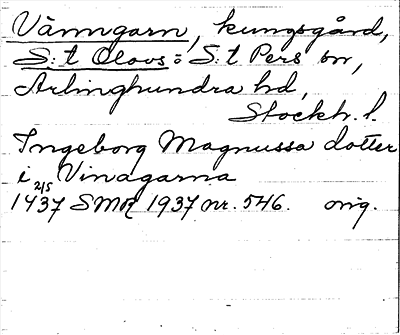 Vänngarn, kungsgård,
S:t Olovs = S:t Pers sn,
Ärlinghundra hd,
Stockh. l.
Ingeborg Magnussa dotter
i Vinagarna
2/5
1437 SMR 1937 nr. 546. orig.